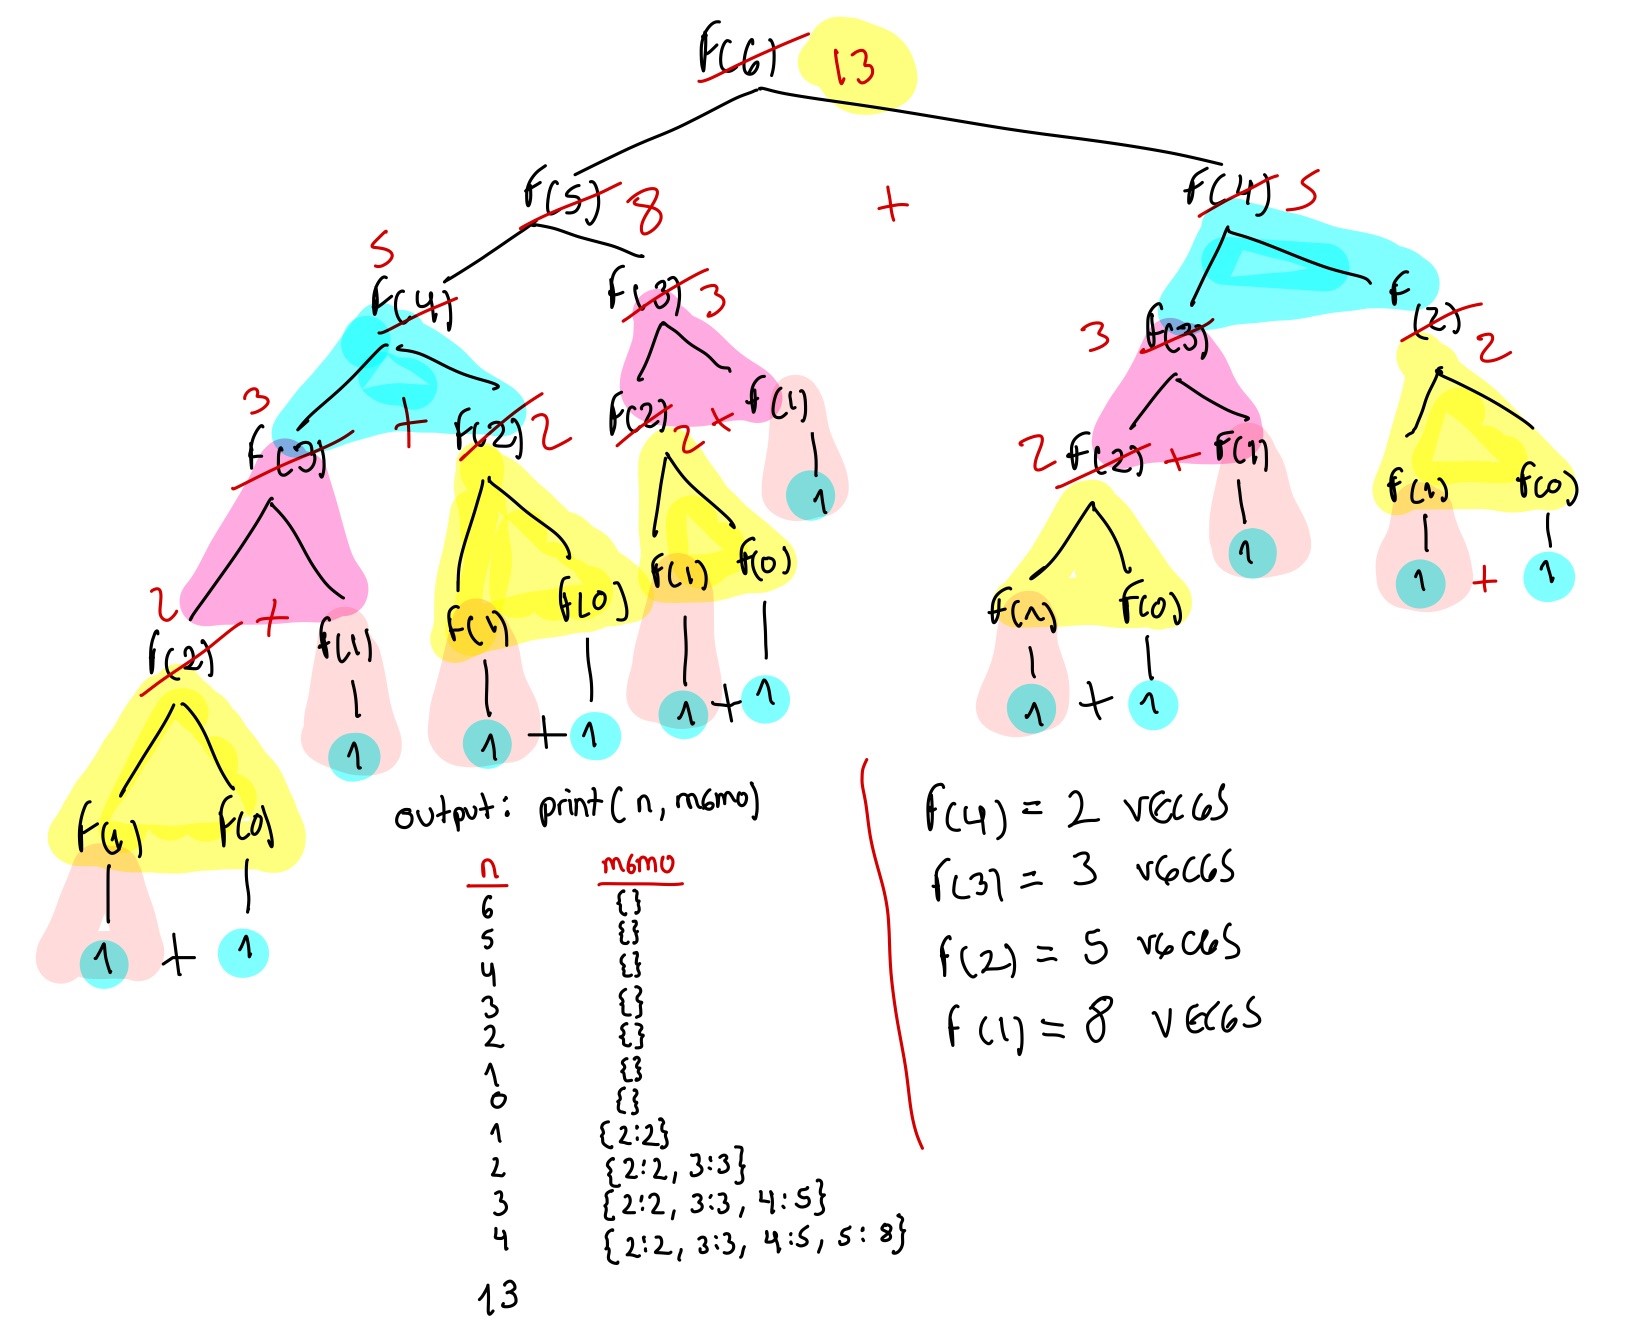 f(6) 13
f(5) 8 + f(4) 5
5
f(4) f(3) 3 f
3 f(3) (2) 2
3 + f(2) 2 f(2) 2 + f(1)
f(3) 2 f(2) + f(1)
1 f(1) f(0)
f(1) f(0) 1
2 + f(1) f(0) 1 + 1
f(2) f(1) f(1) f(0)
1 1 + 1 1 + 1 1 + 1
f(1) f(0)
1 + 1
output: print(n, memo)
n memo
6 {}
5 {}
4 {}
3 {}
2 {}
1 {}
0 {}
1 {2:2}
2 {2:2, 3:3}
3 {2:2, 3:3, 4:5}
4 {2:2, 3:3, 4:5, 5:8}
13
f(4) = 2 veces
f(3) = 3 veces
f(2) = 5 veces
f(1) = 8 veces